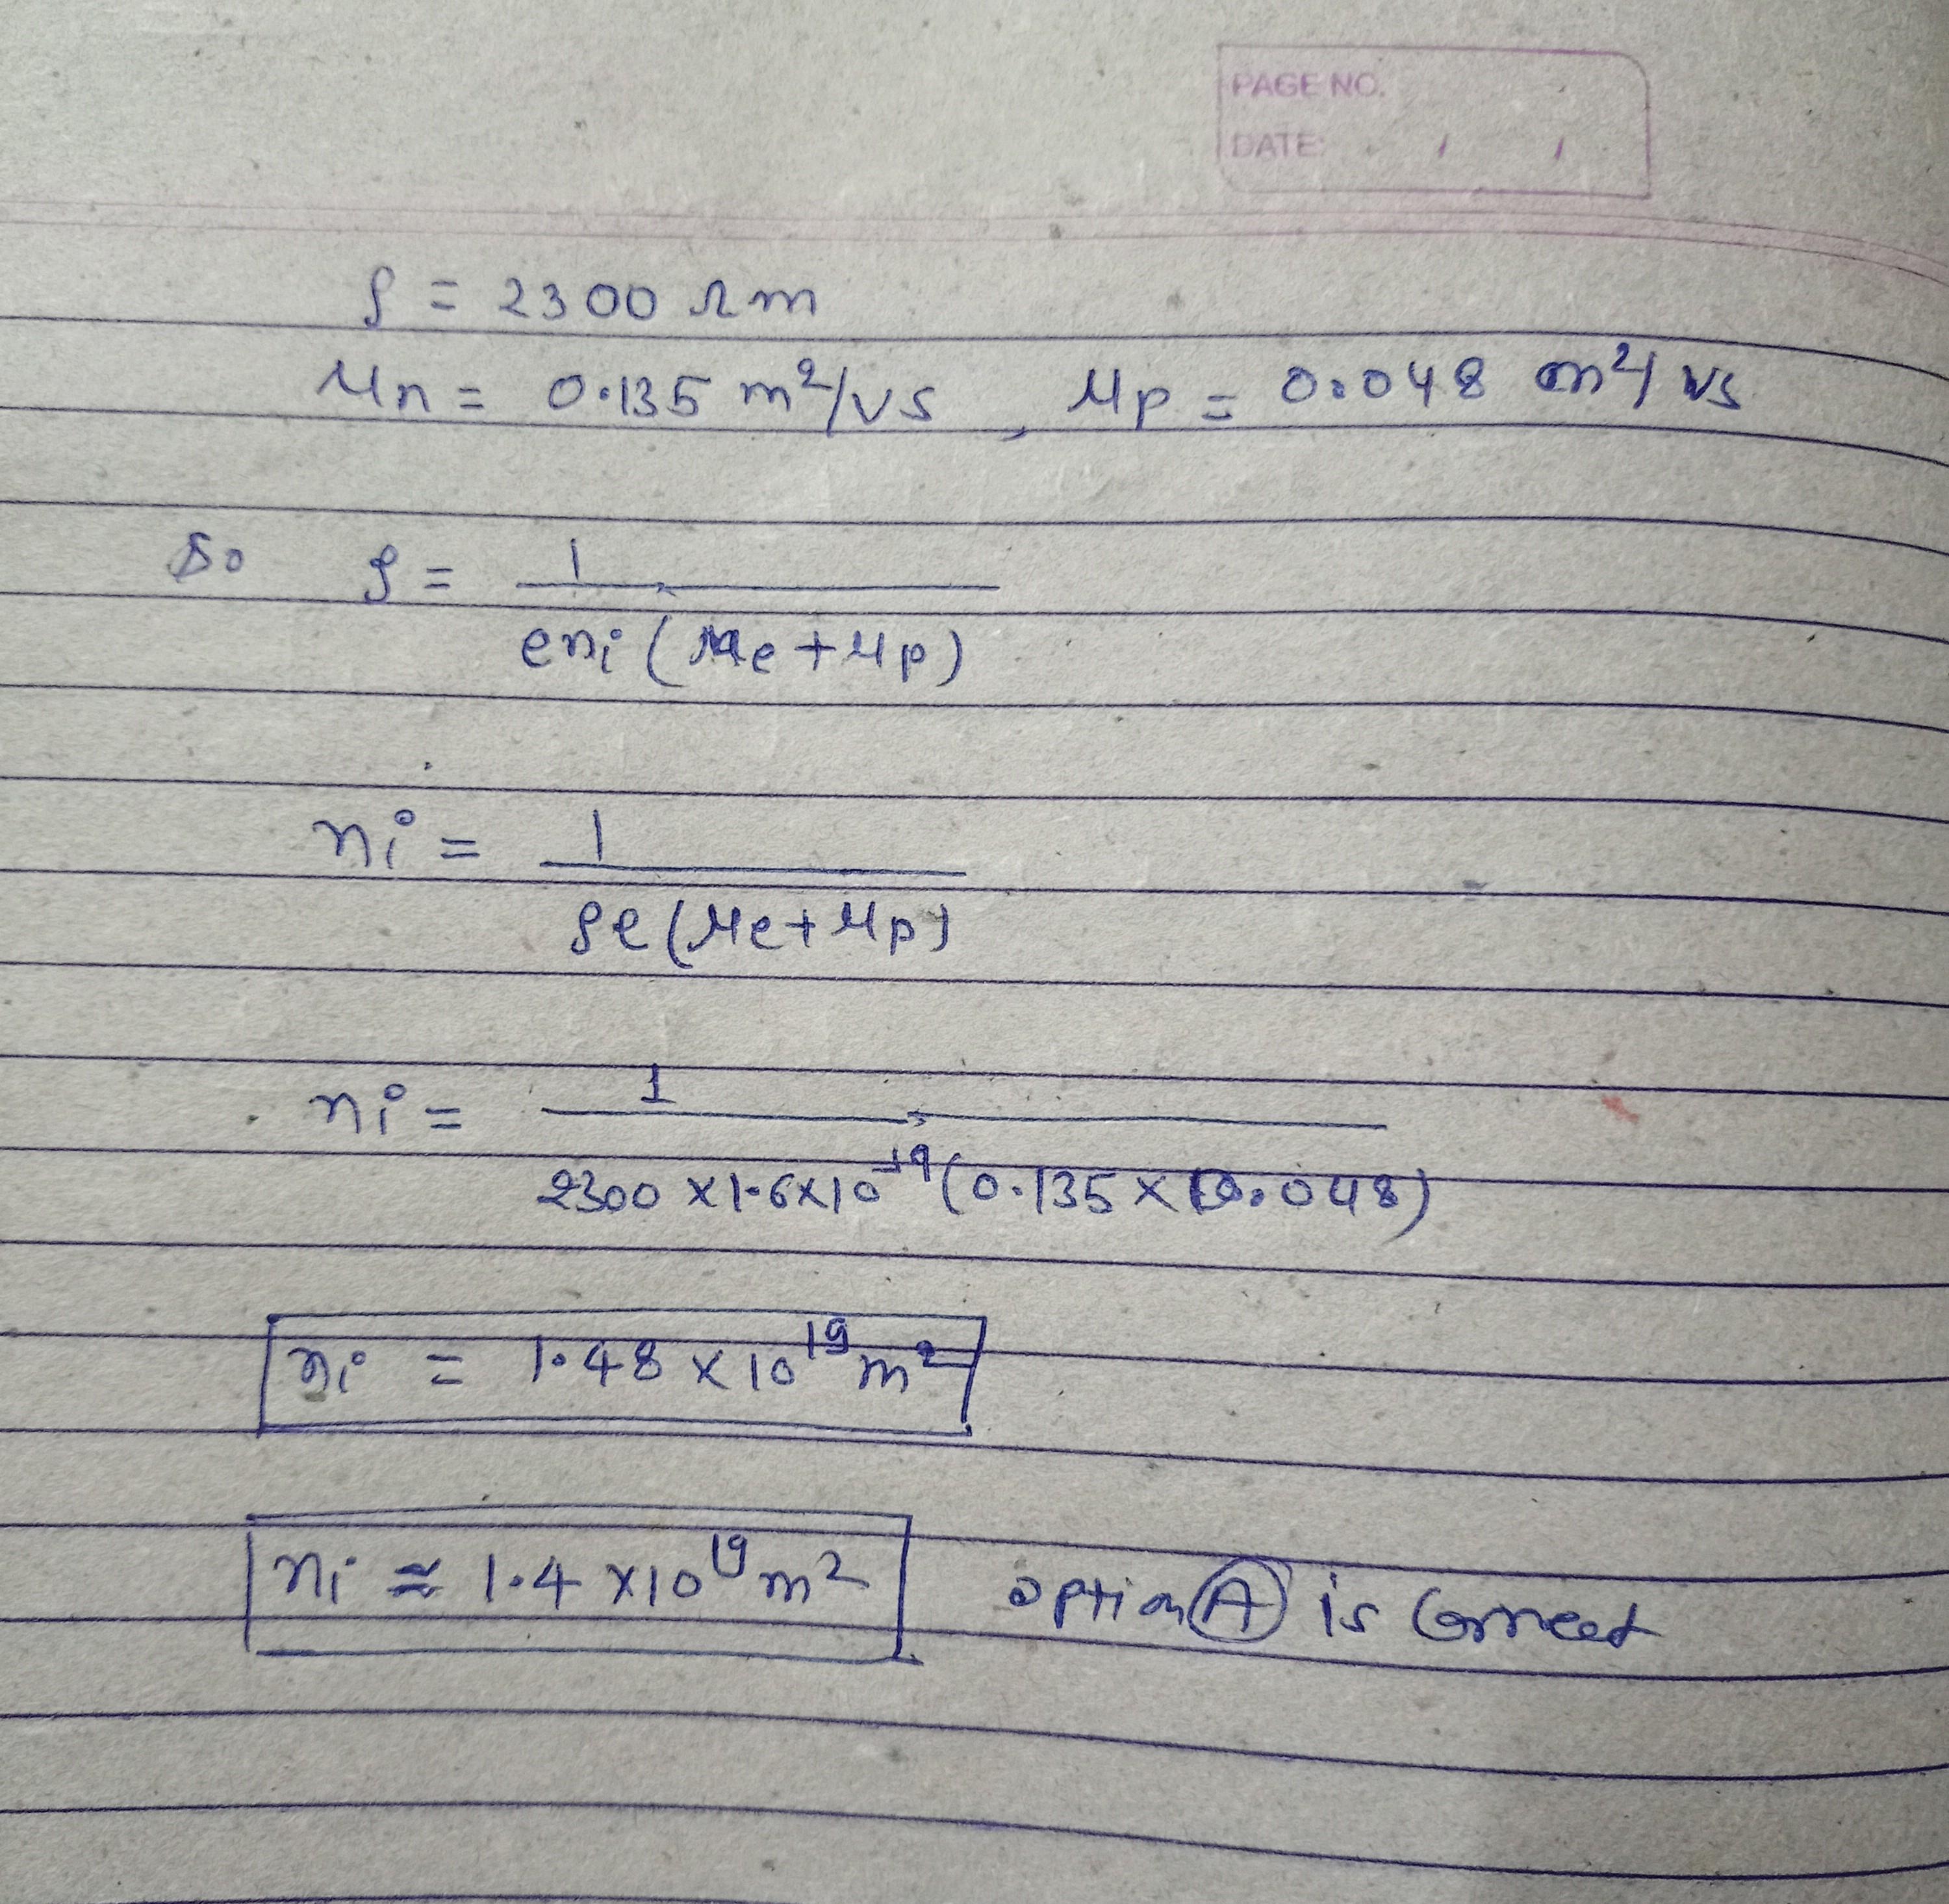 PAGE NO.
DATE: / /
ρ = 2300 Ωm
μn = 0.135 m²/vs , μp = 0.048 m²/vs
So ρ = 1 / eni (μe + μp)
ni = 1 / ρe (μe + μp)
ni = 1 / 2300 × 1.6×10⁻¹⁹ (0.135 × 0.048)
ni = 1.48 × 10¹⁹ m²
ni ≈ 1.4 × 10¹⁹ m² option (A) is Correct